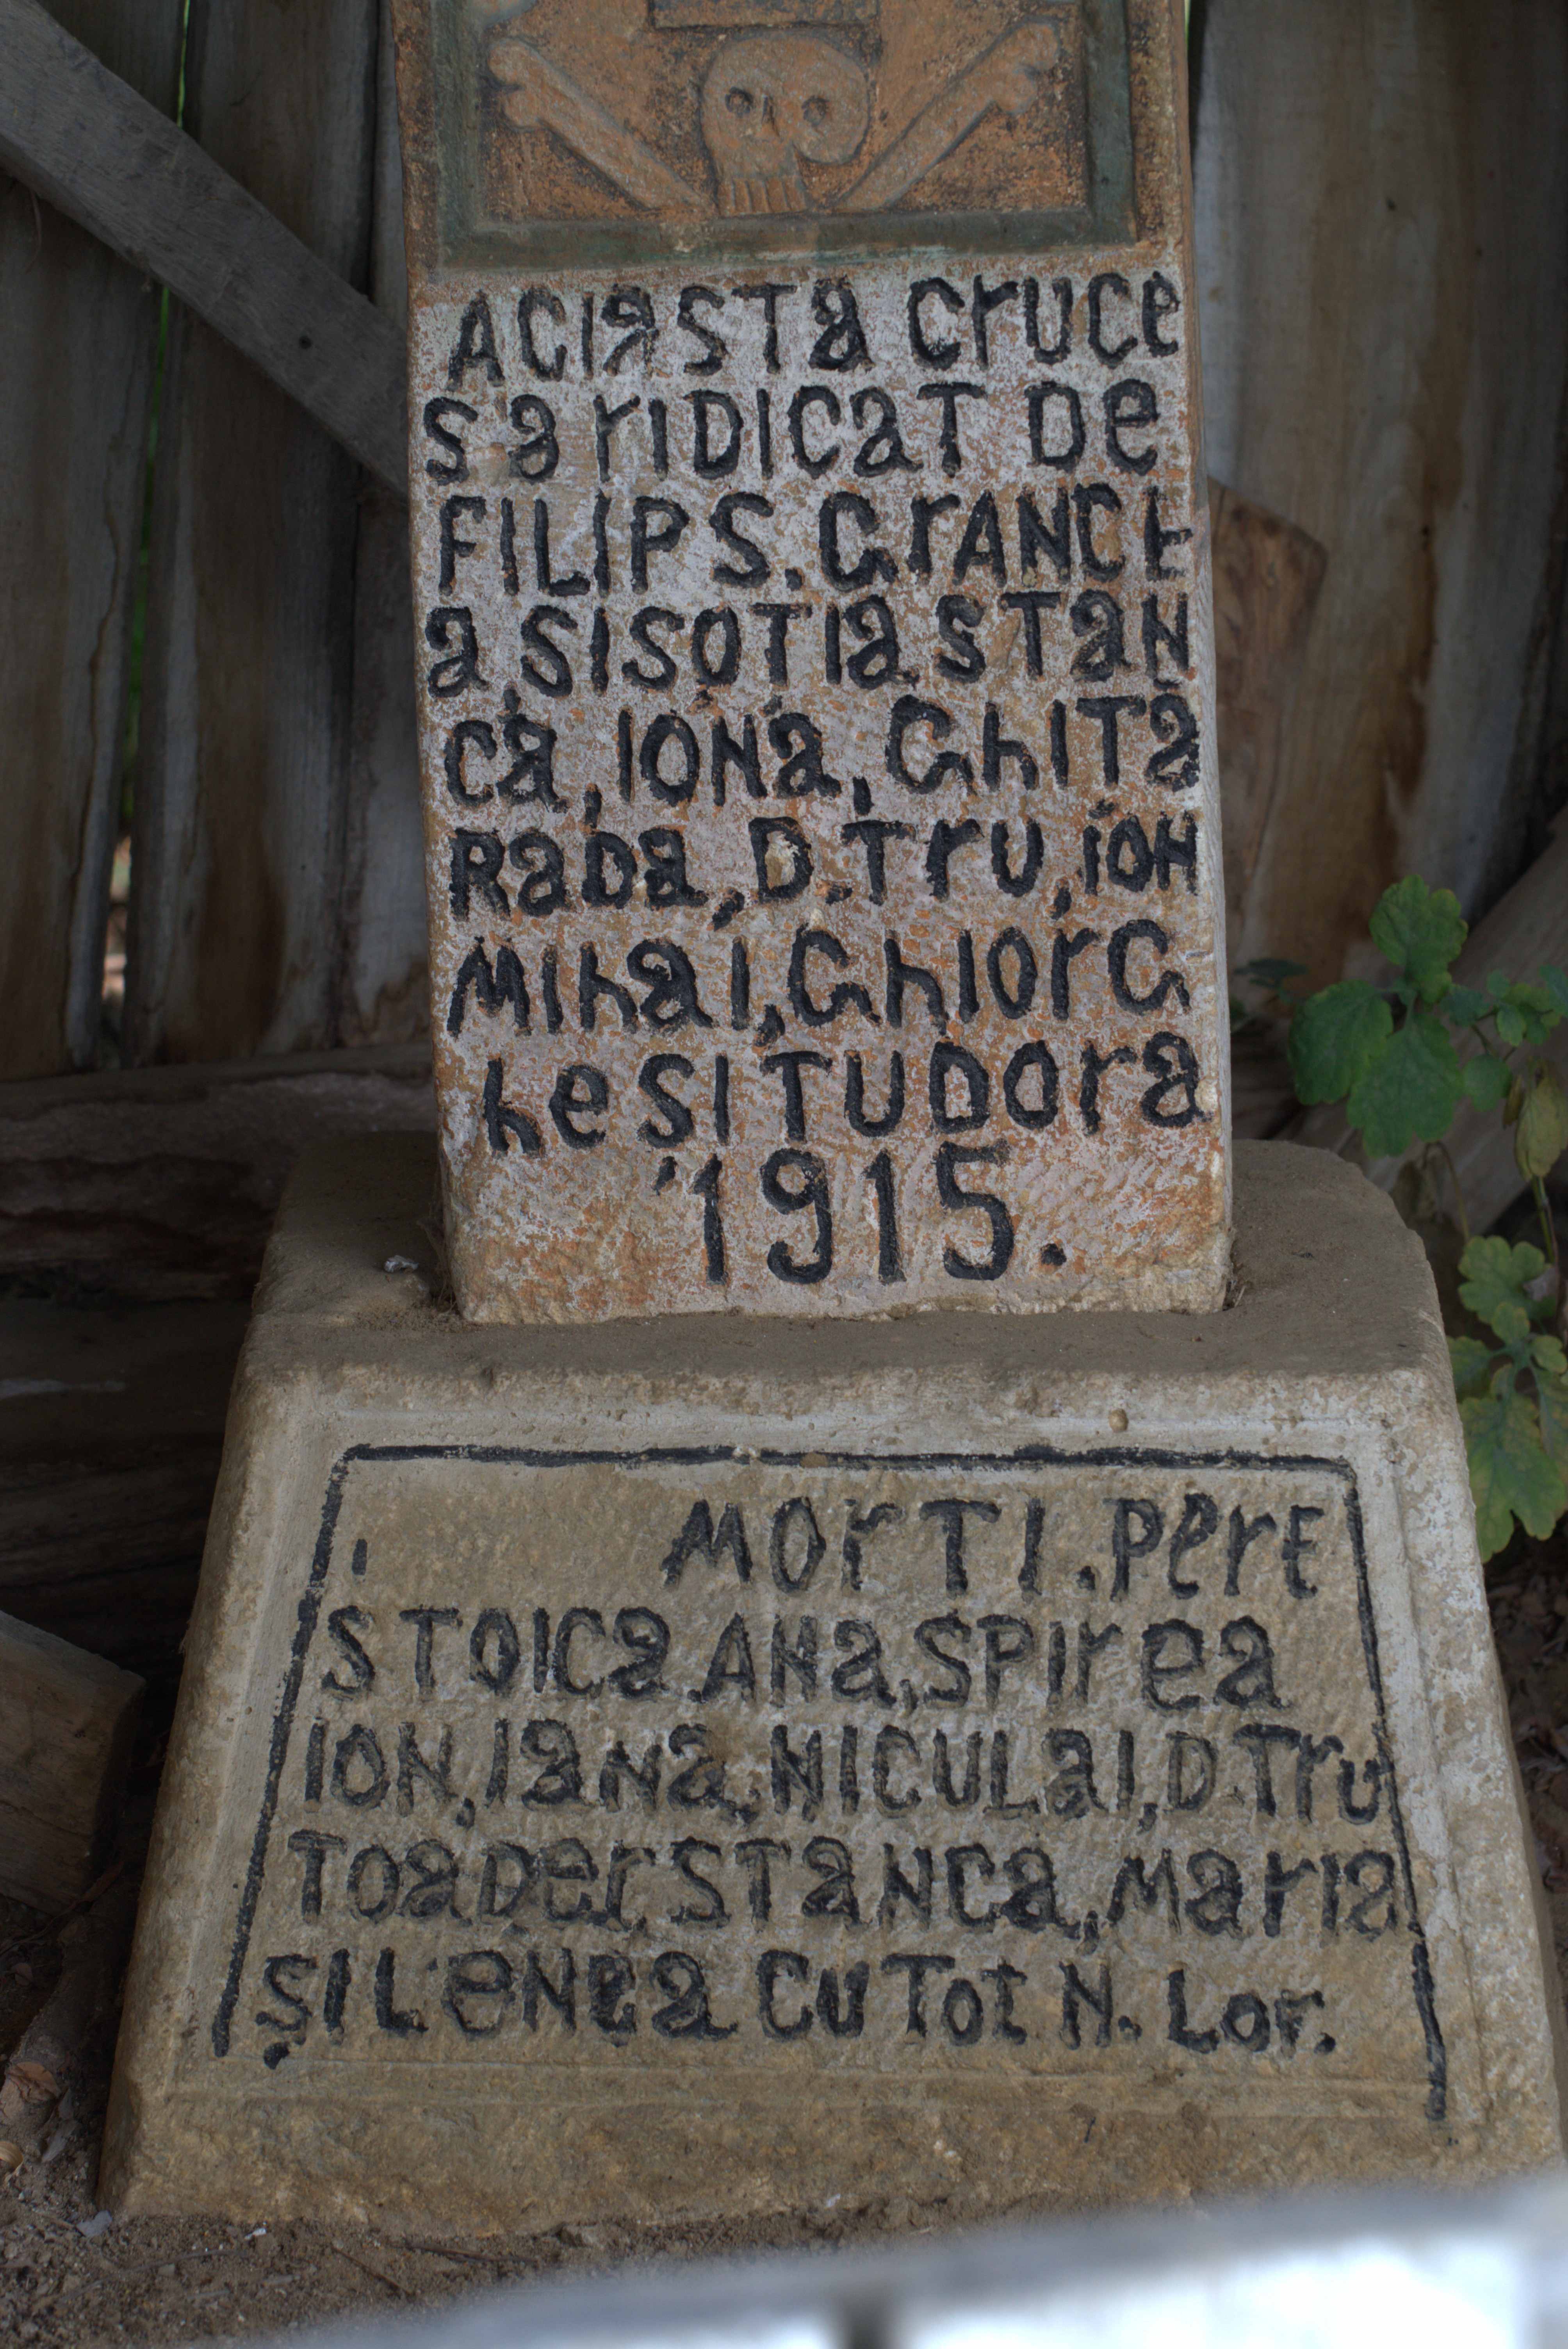 ACIaSTa CrUCe
Sa rIDICaT De
FILIP S. GrANCE
a, ȘI SOȚIa STaN
Ca, IONa, GhIȚa
RaDa, D.Tru, ION
MIhaI, GhIOrG
he ȘI TUDOra
1915.
MOrȚI. PeTrE
STOICa, ANa, SPIrea
ION, IaNa, NICULaI, D.Tru
TOaDer, STaNCa, MarIa
ȘI LeNCa Cu Tot N. Lor.